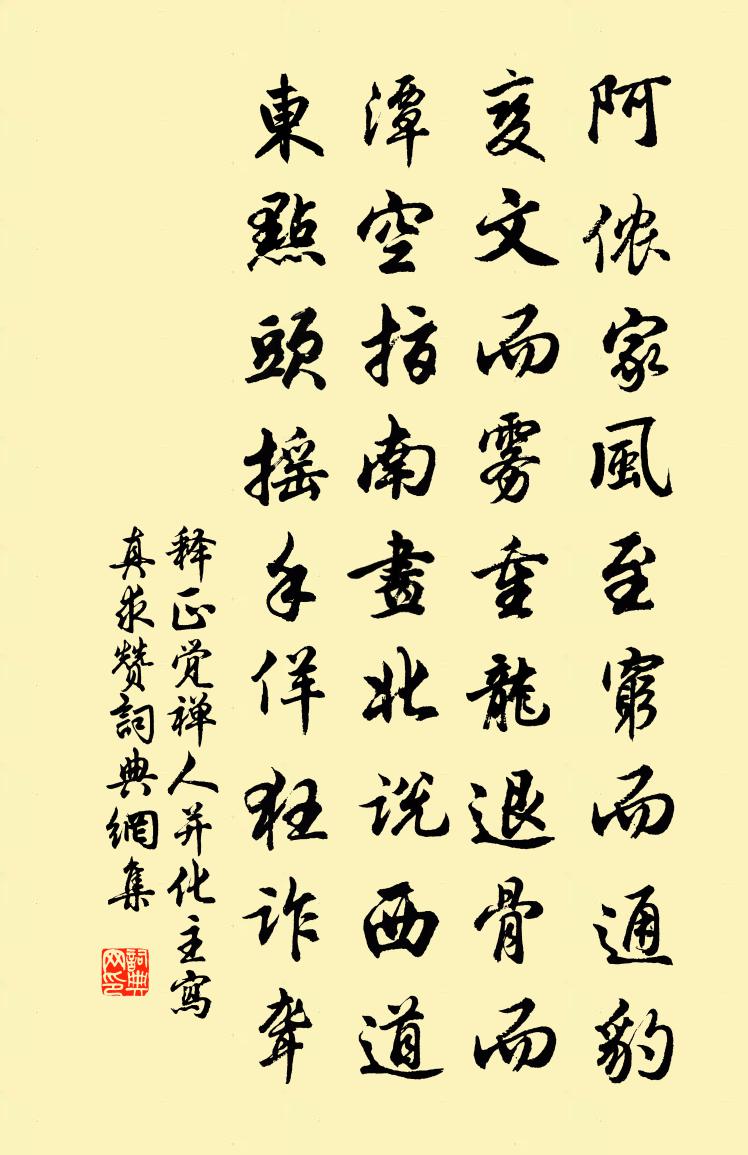 阿侬家風至窮而通豹
变文而雾重龍退骨而
潭空指南畫北说西道
東點頭摇手佯狂诈聋
释正觉禅人并化主寫
真求赞詞典網集
詞典网印